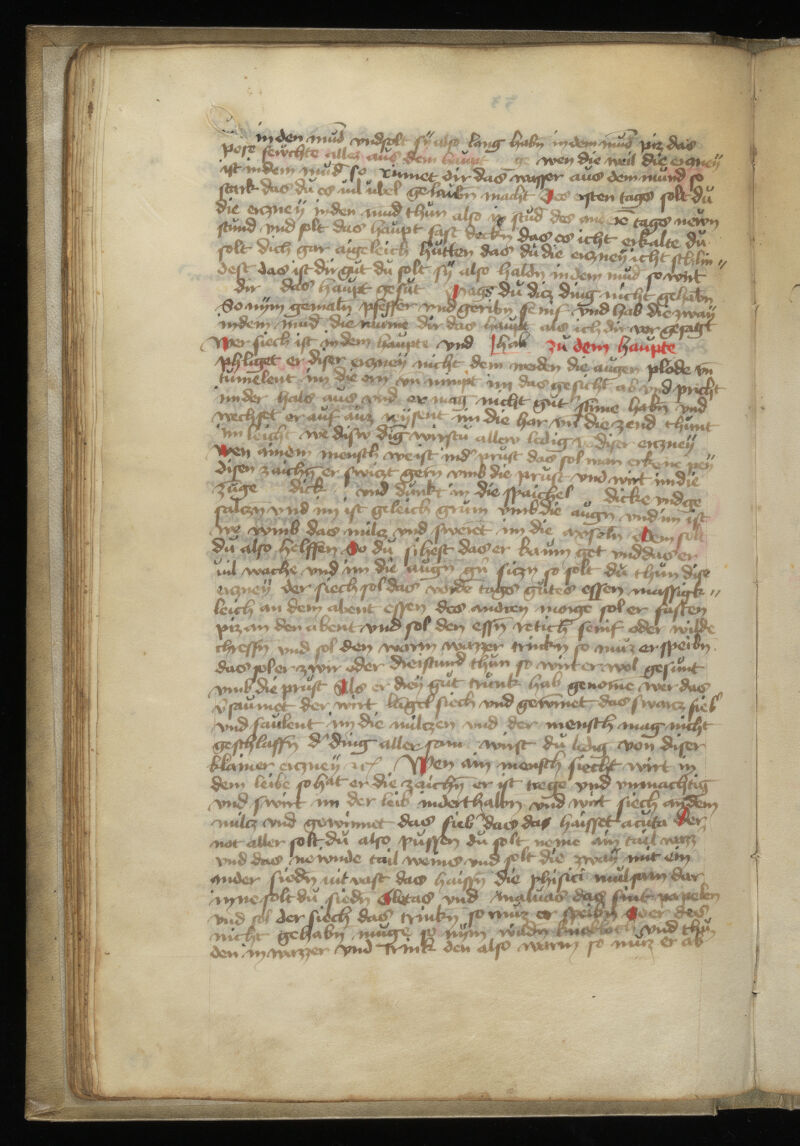 in den mud vnd solt sy also lang habn in dem mud piz das
pose fewchte alles aus dem haupt ge wen die weil die erczney
ist in dem mud so rinnet dir das wasser aus dem mund so
stark das du es vil vbel gelaubn macht Des ersten tags solt du
die erczney in den mud thun also ix stud des andren tags newn
stund vnd solt das haupt fast deckn das es icht erkalte du
solt dich gar aigeleich hütten das du die erczney icht schlin=
dest das ist dir gut du solt sy also haldn in dem mud so wirt
dir das haupt gesut Mags du diz ding nicht gehabn
So nym gemaln pfeffer vnd geribn senif vnd hab die zway
in dem mud die rawme dir das haupt als ich dir vor gesagt
Wer siech ist in dem haupte vnd hab zu dem haupte
phliget er diser erczney nicht dem werden die augen plode vn
tunckelent im die orn vn nimpt im das gesicht ab vnd pricht
in der hals aus vnd er mag nicht gut stime habn vnd
wechset er auf auz reysent im die har vn die zend thunt
im leicht we diser ding wirstu aller ledig v diser erczney
Wen ainem mensch we ist in d prust das sol man erkene pey
disen zaichn er swiczt gern vmb die prust vnd wirt im die
zuge dick vnd dunkt in die spaichel dicke vnd ge
salczn vnd im ist geleich grun vmb die augn vnd im ist
we vmb das milcz vnd sweret im die axseln Dem solt
du also helffen So du sihest das er kaum get vnd das er
vil wache vnd im die augn gn siczn so solt du thun dise
erczney der siech sol das vorder tags gutes essen massigk=
leich an dem abent essen des andren morge sol er fasten
piz an den abent vnd sol den essn retich senif oder wilde
chressn vnd sol den warm wazzer trinkn so muz er speibn
das sol er zwir oder dreistund thun so wirt er wol gesunt
vmb die prust Als er drey gut trunk hab genome wer das
v saumet der wirt langk siech vnd gewinnet das swarcz sieb
vnd faulent im die milczen vnd der mensch mag nicht
geschlaffn D ding aller sam wirst du ledig von diser
klainer erczney etc Wen ain mensch siecht wirt in
dem leibe so hat er die zaichn er ist trege vnd vnmachtig
vnd swirt im der leib inderthalbn vnd wirt siech an dem
milcz vnd gewinnet das fieb das da haisset acuta Der
not aller solt du also pussen du solt neme ain tail wazz
vnd das newnde tail weines vnd solt die zway mit ein
ander siedn vil vast das haissn die phisici mulsam dar
inne solt du siedn Bletas vnd maluas das sint papelen
vnd sol der siech das trinkn so muz er speibn Wer des
nicht gehabn muge so nym wildn knobloch vnd thu
den in wazzer vnd trink den also warm so muz er ab